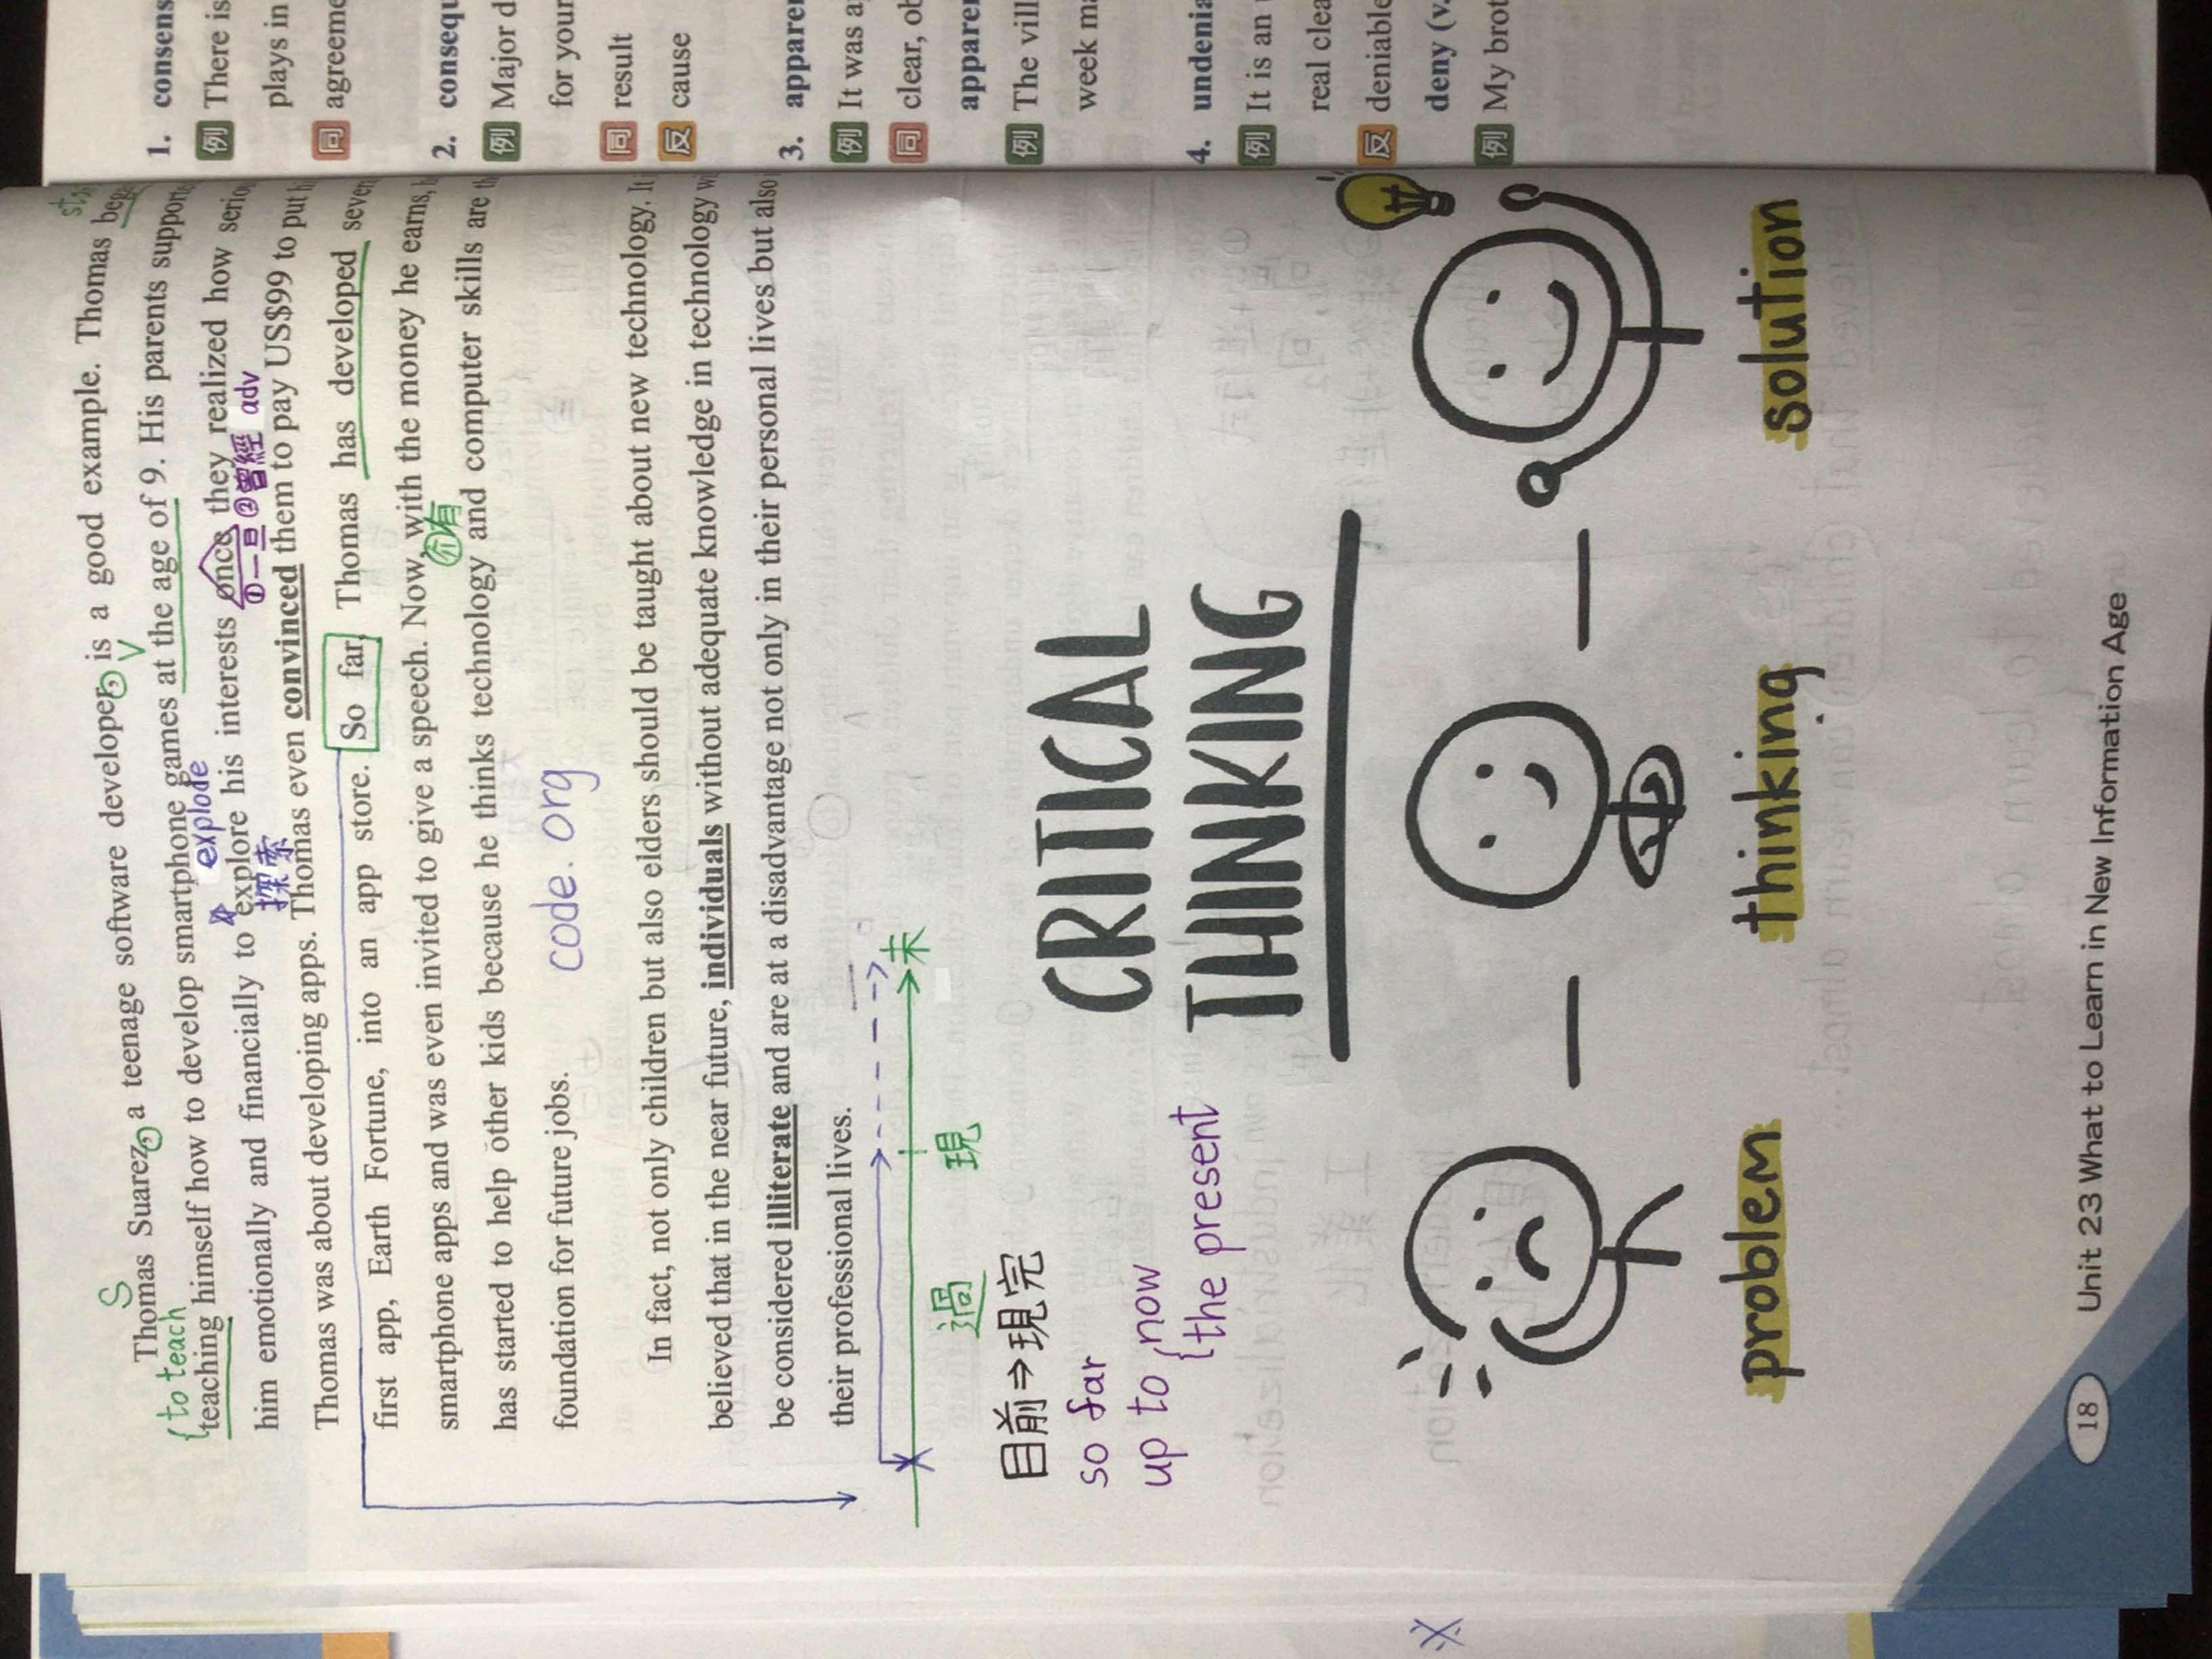 Thomas Suarez, a teenage software developer, is a good example. Thomas
S
V
{to teach
teaching himself how to develop smartphone games at the age of 9. His parents
explode
him emotionally and financially to explore his interests once they realized how
探索
①一旦 ②曾經 adv
Thomas was about developing apps. Thomas even convinced them to pay US$99 to put
first app, Earth Fortune, into an app store. So far, Thomas has developed
smartphone apps and was even invited to give a speech. Now, with the money he earns,
介 有
has started to help other kids because he thinks technology and computer skills are
foundation for future jobs.
code.org
In fact, not only children but also elders should be taught about new technology. It
believed that in the near future, individuals without adequate knowledge in technology
be considered illiterate and are at a disadvantage not only in their personal lives but also
their professional lives.
過 現 未
目前⇒現完
so far
up to {now
the present
CRITICAL
THINKING
problem – thinking – solution
18 Unit 23 What to Learn in New Information Age
1. consens
例 There is
plays in
同 agreeme
2. consequ
例 Major d
for your
同 result
反 cause
3. apparen
例 It was a
同 clear, ob
apparen
例 The vill
week ma
4. undenia
例 It is an
real clea
反 deniable
deny (v.
例 My brot